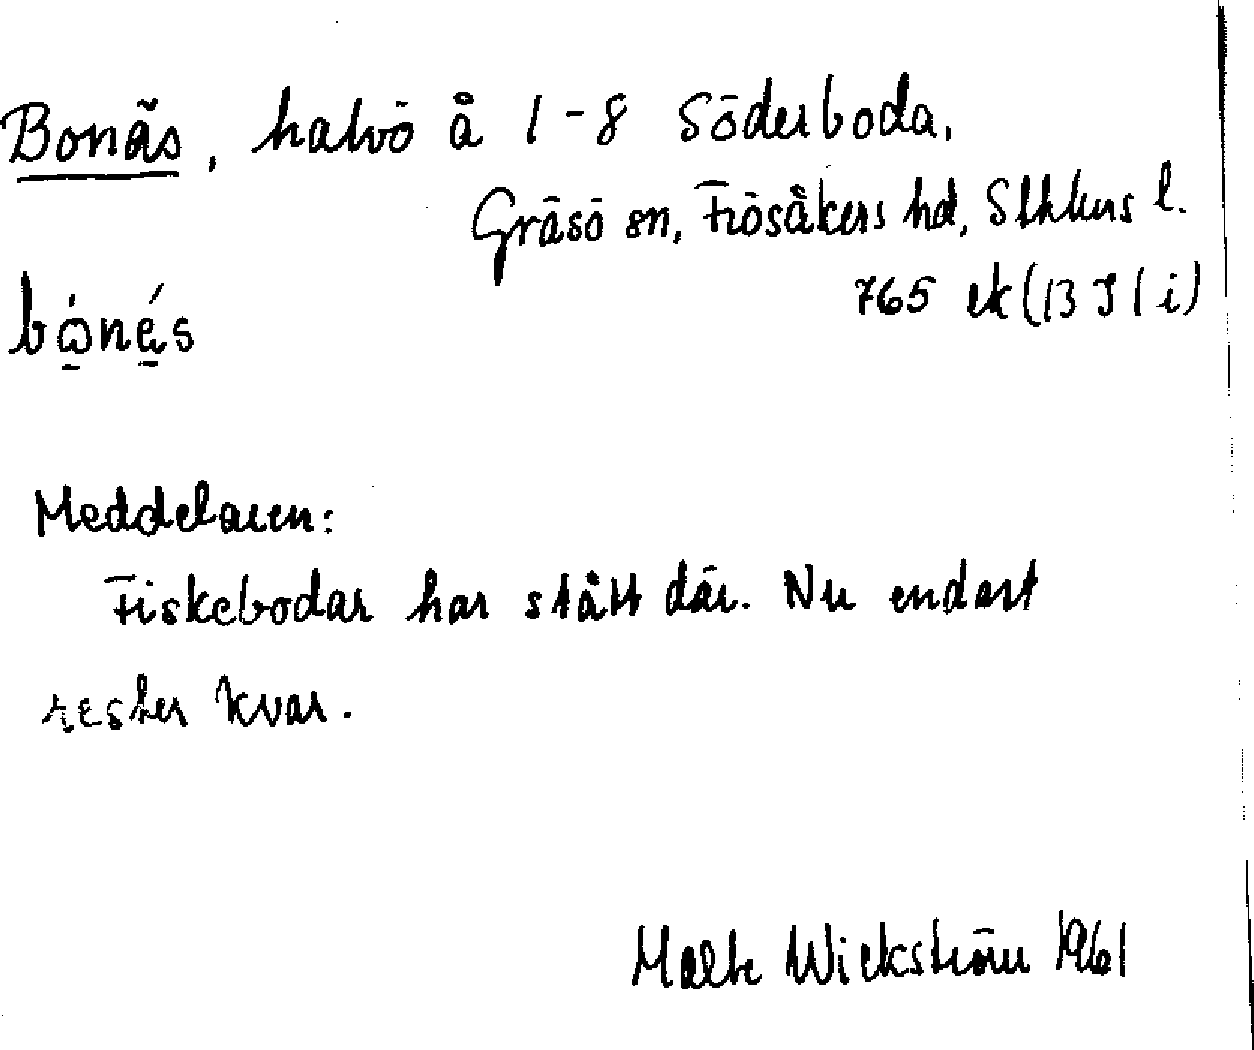 Bonäs, halvö å 1-8 Söderboda,
Gräsö sn, Frösåkers hd, Sthlms l.
765 ek (13 I 1 i)
Meddelaren:
Fiskebodar har stått där. Nu endast
rester kvar.
Malte Wickström 1961